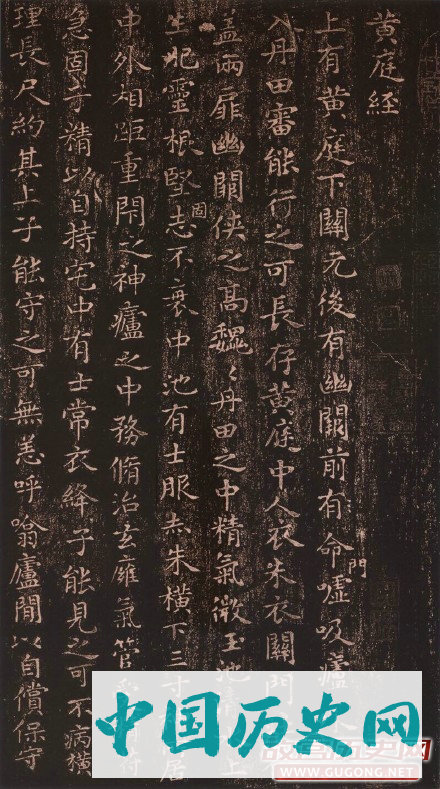 黄庭經
上有黄庭下關元後有幽闕前有命門嘘吸廬
入丹田審能行之可長存黄庭中人衣朱衣關門
盖兩扉幽闕俠之高魏〻丹田之中精氣微玉池上
生肥靈根堅固志不衰中池有士服赤朱横下三寸居
中外相距重閇之神廬之中務脩治玄膺氣管符
急固子精以自持宅中有士常衣絳子能見之可不病横
理長尺約其上子能守之可無恙呼噏廬閒以自償保守
中国历史网
WWW.GUGONG.NET